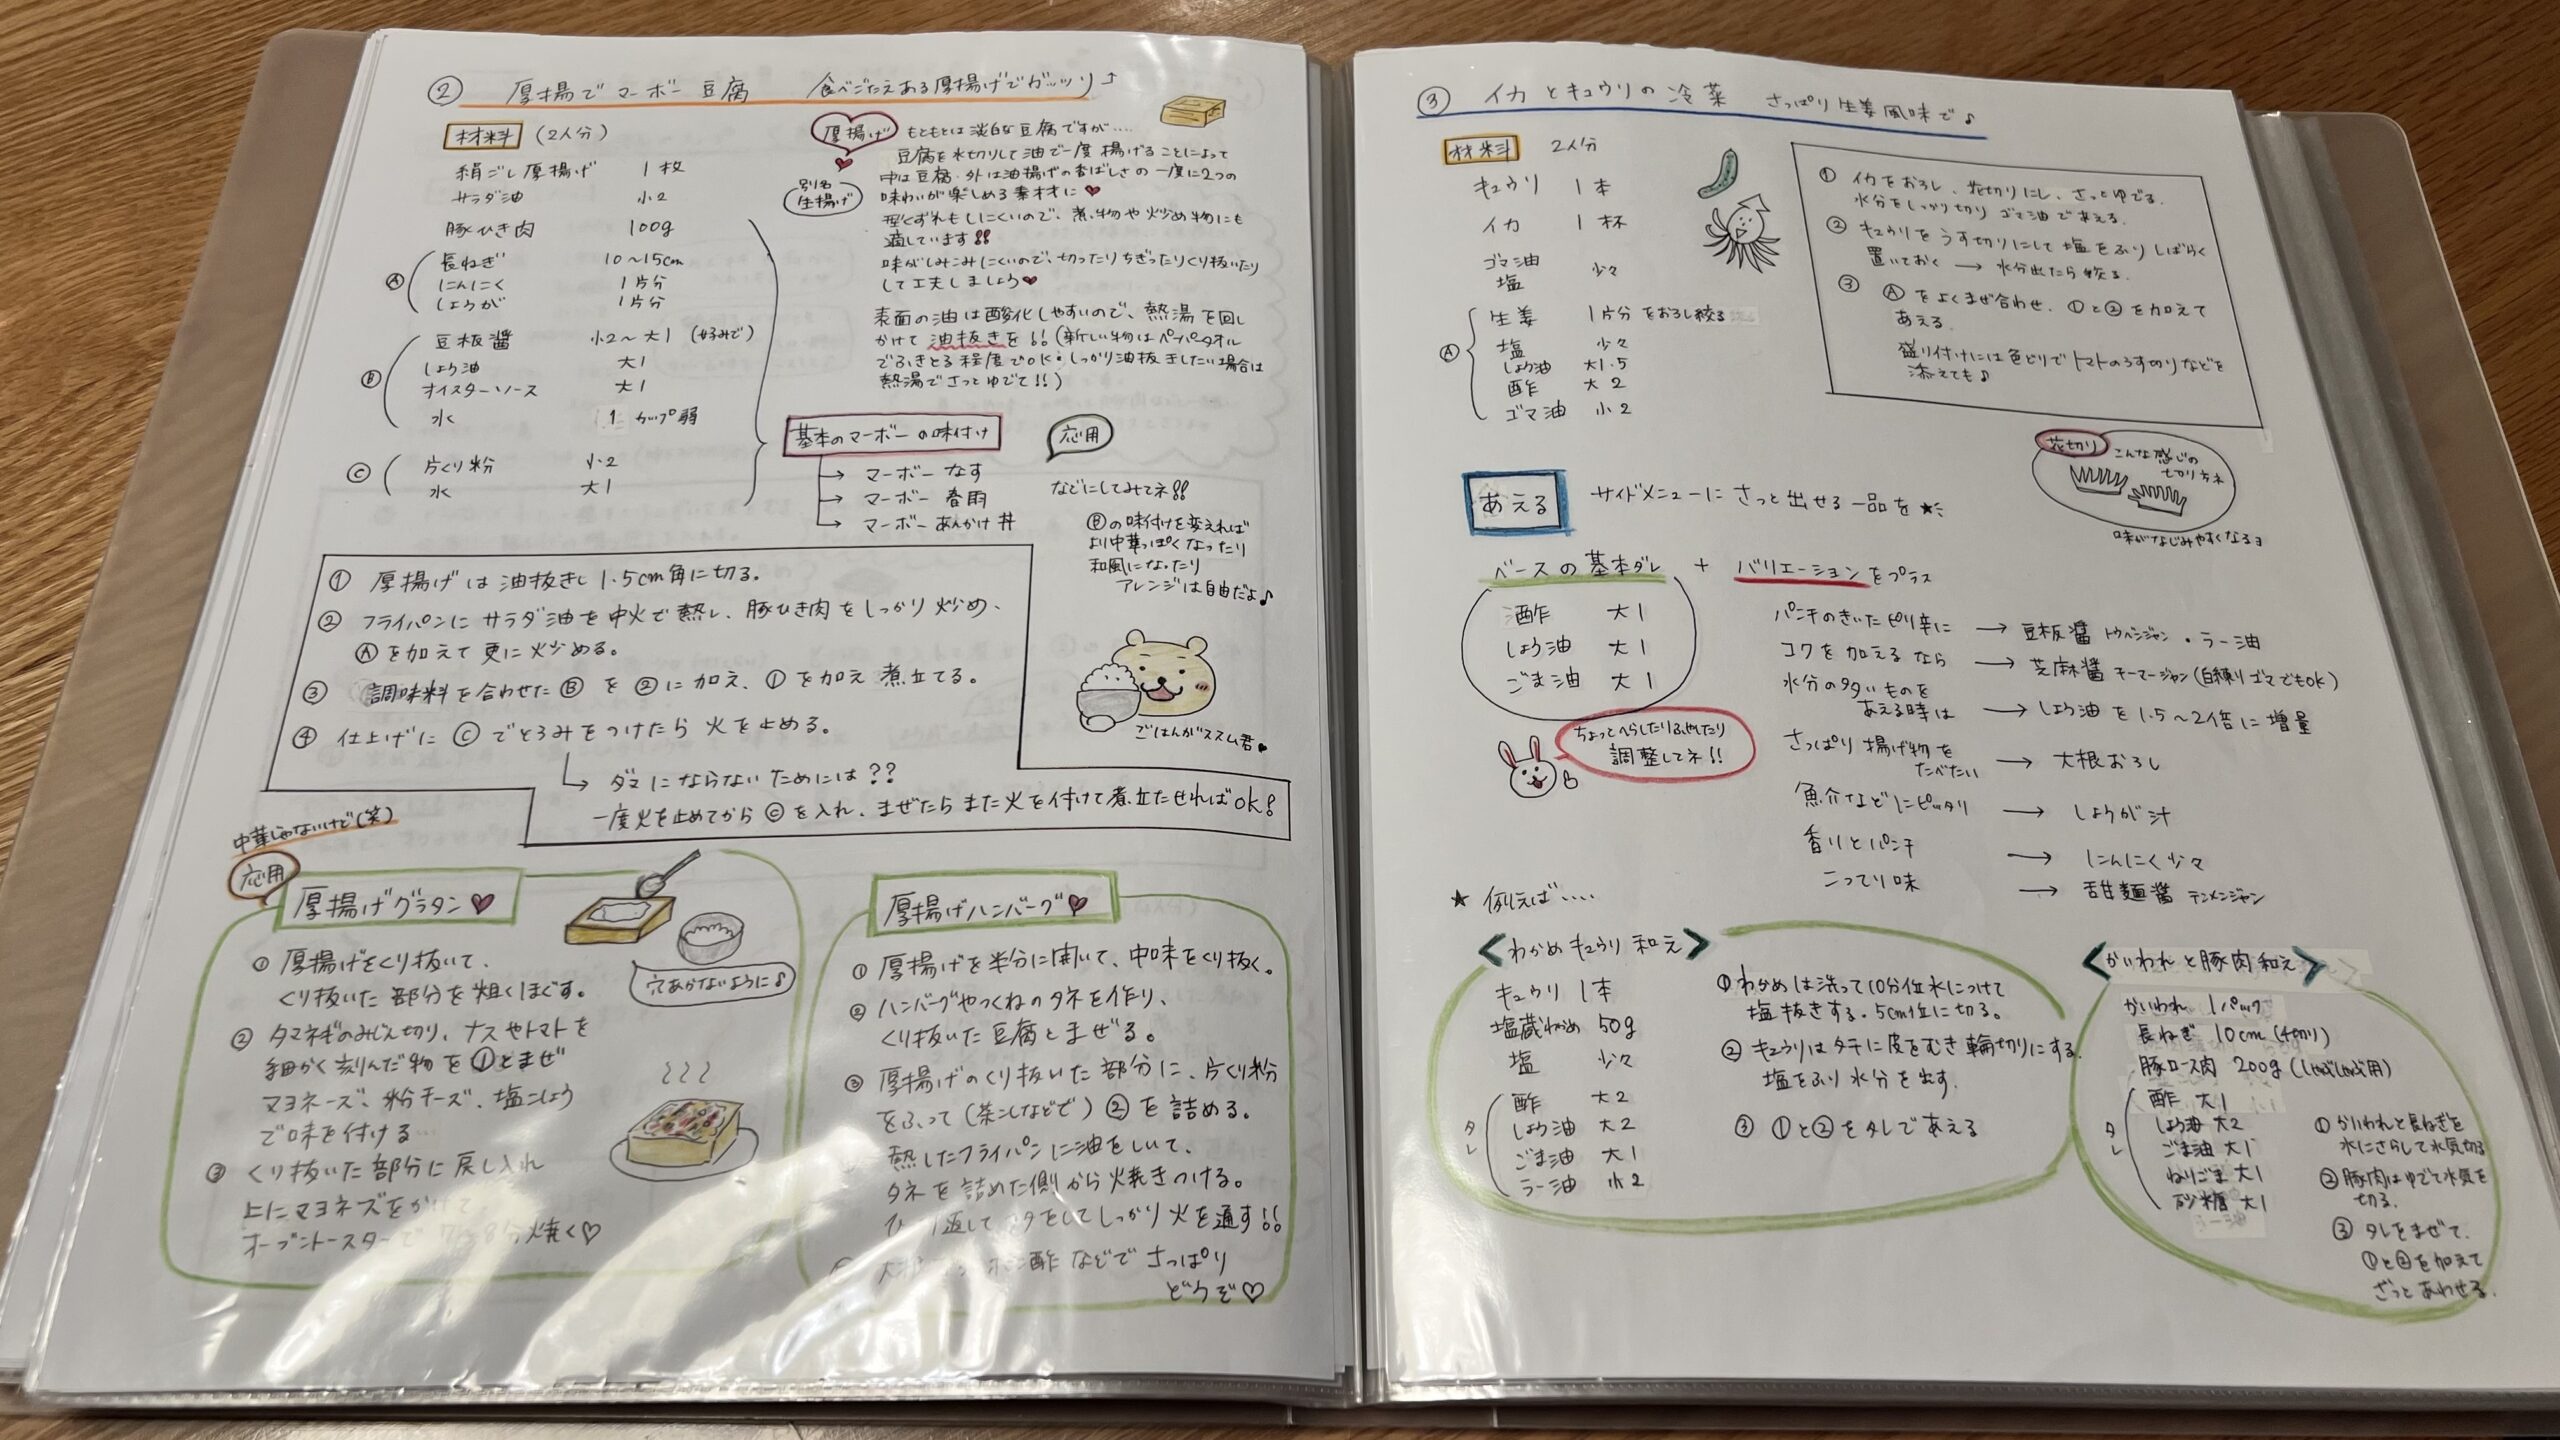 ② 厚揚で マーボー 豆腐　食べごたえある厚揚げでガッツリ↑
材料 (2人分)
絹ごし厚揚げ 1枚
サラダ油 小2
豚ひき肉 100g
Ⓐ
長ねぎ 10〜15cm
にんにく 1片分
しょうが 1片分
Ⓑ
豆板醤 小2〜大1 (好みで)
しょう油 大1
オイスターソース 大1
水 1カップ弱
Ⓒ
片くり粉 小2
水 大1
厚揚げ
別名
生揚げ
もともとは淡白な豆腐ですが‥‥
豆腐を水切りして油で一度揚げることによって
中は豆腐・外は油揚げの香ばしさの一度に2つの
味わいが楽しめる素材に♥
型くずれもしにくいので、煮物や炒め物にも
適しています!!
味がしみこみにくいので、切ったりちぎったりくり抜いたり
して工夫しましょう♥
表面の油は酸化しやすいので、熱湯を回し
かけて油抜きを!!(新しい物はペーパータオル
でふきとる程度でOK・しっかり油抜きしたい場合は
熱湯でさっとゆでて!!)
基本のマーボーの味付け
応用
→ マーボー なす
→ マーボー 春雨
→ マーボー あんかけ 丼
などにしてみてネ!!
Ⓑの味付けを変えれば
より中華っぽくなったり
和風になったり
アレンジは自由だよ♪
① 厚揚げは油抜きし1.5cm角に切る。
② フライパンにサラダ油を中火で熱し、豚ひき肉をしっかり炒め、
Ⓐを加えて更に炒める。
③ 調味料を合わせたⒷを②に加え、①を加え煮立てる。
④ 仕上げにⒸでとろみをつけたら火を止める。
→ ダマにならないためには??
一度火を止めてからⒸを入れ、まぜたらまた火を付けて煮立たせればOK!
ごはんがススム君♥
中華じゃないけど(笑)
応用
厚揚げグラタン♥
① 厚揚げをくり抜いて、
くり抜いた部分を粗くほぐす。
② タマネギのみじん切り、ナスやトマトを
細かく刻んだ物を①とまぜ
マヨネーズ、粉チーズ、塩こしょう
で味を付ける
③ くり抜いた部分に戻し入れ
上にマヨネズをかけて
オーブントースターで 7〜8分焼く♡
穴あかないように♪
厚揚げハンバーグ♥
① 厚揚げを半分に開いて、中味をくり抜く。
② ハンバーグやつくねのタネを作り、
くり抜いた豆腐とまぜる。
③ 厚揚げのくり抜いた部分に、片くり粉
をふって(茶こしなどで)②を詰める。
熱したフライパンに油をしいて、
タネを詰めた側から焼きつける。
返して フタをしてしっかり火を通す!!
酢などでさっぱり
どうぞ♡
③ イカとキュウリの冷菜　さっぱり生姜風味で♪
材料 2人分
キュウリ 1本
イカ 1杯
ゴマ油
塩 少々
Ⓐ
生姜 1片分をおろし絞る
塩 少々
しょう油 大1.5
酢 大2
ゴマ油 小2
① イカをおろし、花切りにし、さっとゆでる。
水分をしっかり切り ゴマ油であえる。
② キュウリをうす切りにして塩をふりしばらく
置いておく → 水分出たら絞る。
③ Ⓐをよくまぜ合わせ、①と②を加えて
あえる。
盛り付けには色どりでトマトのうす切りなどを
添えても♪
花切り
こんな感じの
切り方ネ
味がなじみやすくなるヨ
あえる サイドメニューにさっと出せる一品を★
ベースの基本ダレ + バリエーションをプラス
酢 大1
しょう油 大1
ごま油 大1
ちょっとへらしたりふやしたり
調整してネ!!
パンチのきいたピリ辛に → 豆板醤 トウバンジャン・ラー油
コクを加えるなら → 芝麻醤 チーマージャン(白練りゴマでもOK)
水分の多いものを
あえる時は → しょう油を1.5〜2倍に増量
さっぱり揚げ物を
たべたい → 大根おろし
魚介などにピッタリ → しょうが汁
香りとパンチ → にんにく少々
こってり味 → 甜麺醤 テンメンジャン
★ 例えば‥‥
＜わかめキュウリ和え＞
キュウリ 1本
塩蔵わかめ 50g
塩 少々
タレ
酢 大2
しょう油 大2
ごま油 大1
ラー油 小2
① わかめは洗って10分位水につけて
塩抜きする。5cm位に切る。
② キュウリはタテに皮をむき輪切りにする。
塩をふり水分を出す。
③ ①と②をタレであえる
＜かいわれと豚肉和え＞
かいわれ 1パック
長ねぎ 10cm (千切り)
豚ロース肉 200g (しゃぶしゃぶ用)
タレ
酢 大1
しょう油 大2
ごま油 大1
ねりごま 大1
砂糖 大1
① かいわれと長ねぎを
水にさらして水気切る
② 豚肉はゆでて水気を
切る。
③ タレをまぜて、
①と②を加えて
ざっとあわせる。